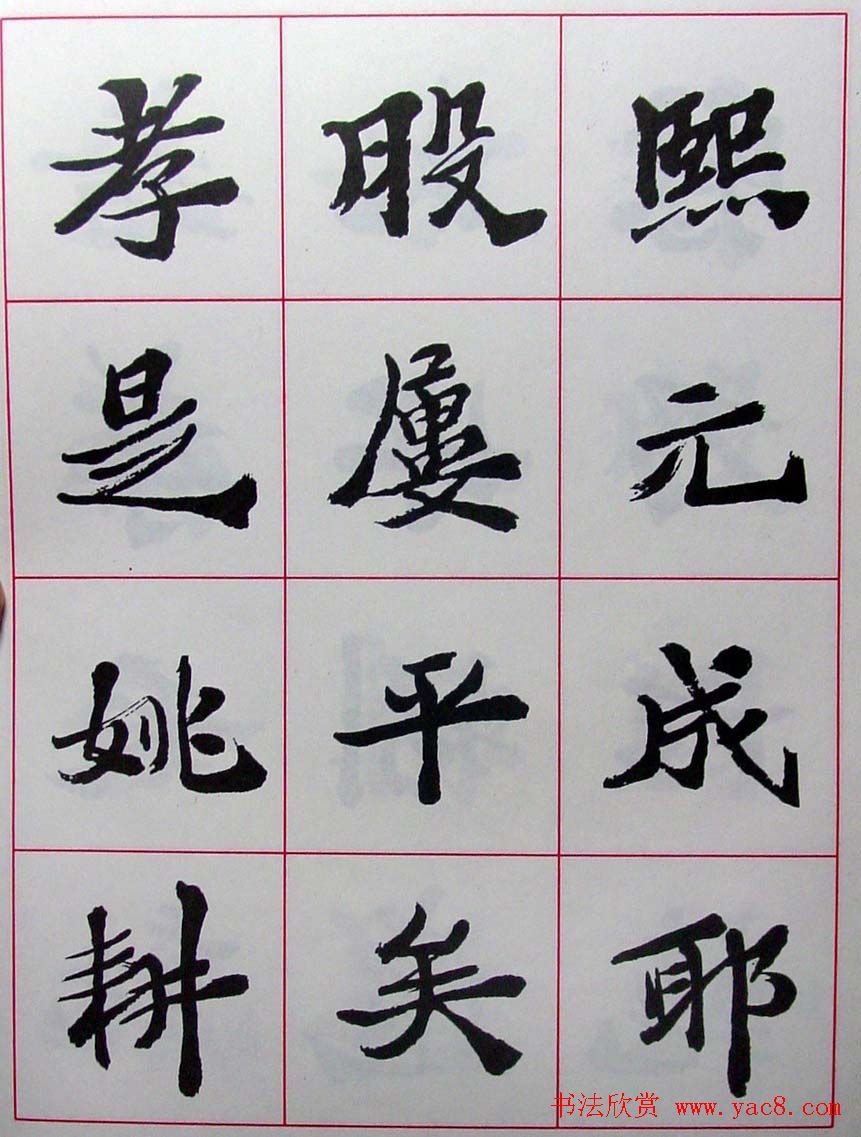 熙元成耶
股屢平矣
孝是姚耕
书法欣赏 www.yac8.com